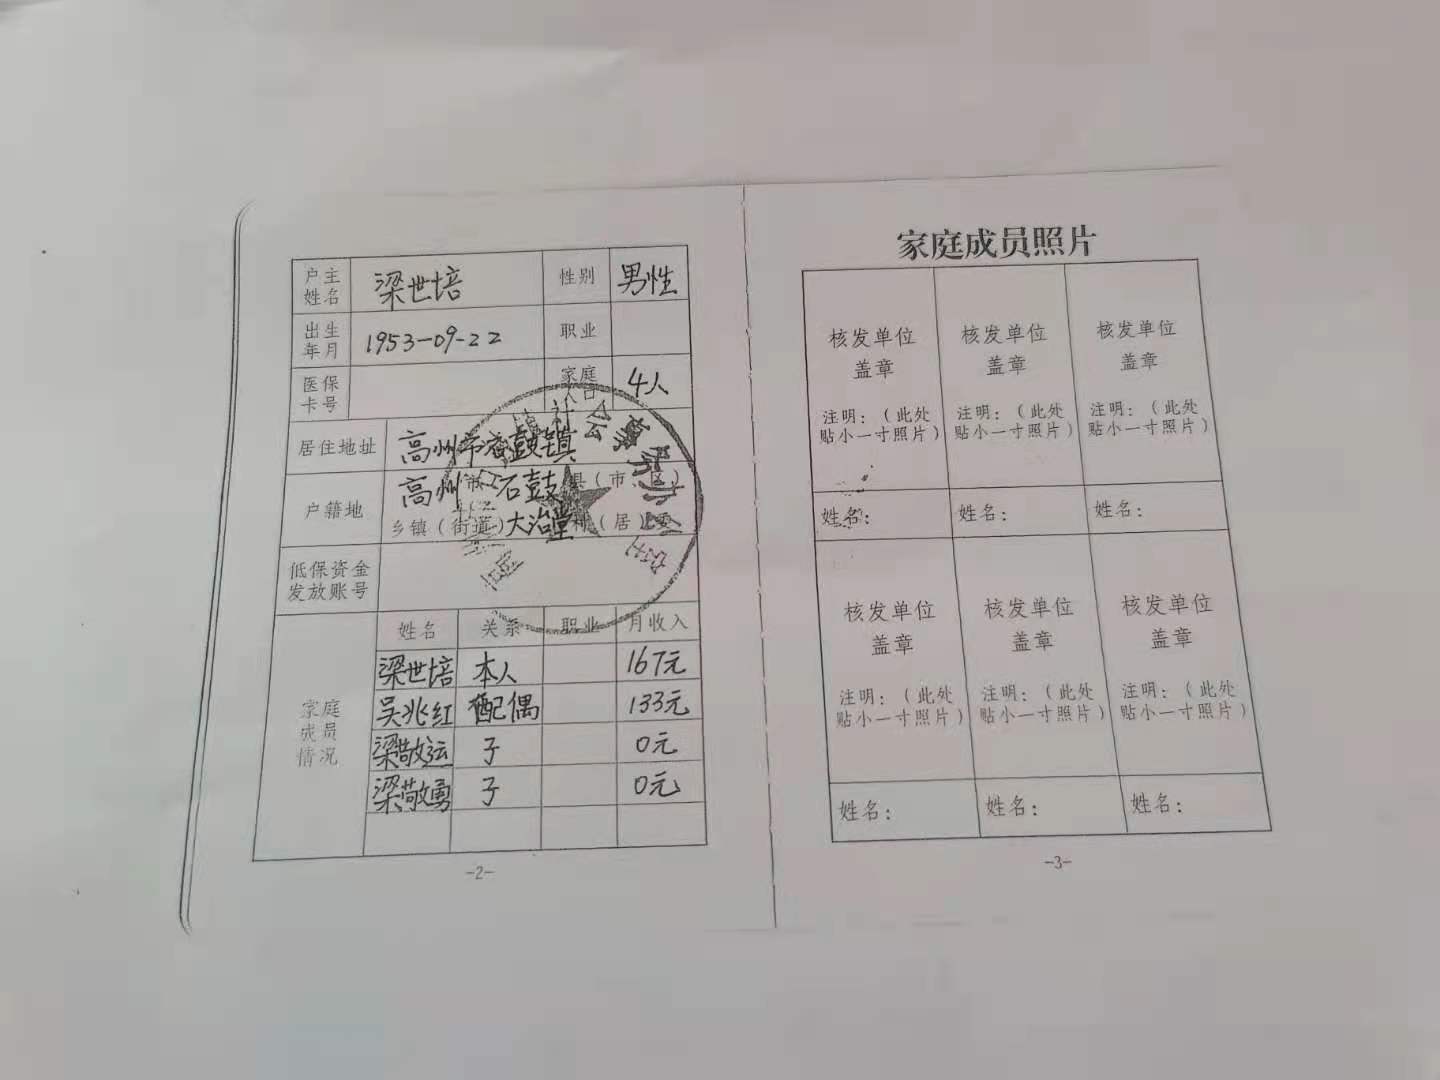 户主姓名 梁世培 性别 男性
出生年月 1953-09-22 职业
医保卡号 家庭人口 4人
居住地址 高州市石鼓镇
户籍地 高州市 石鼓 县（市、区）
乡镇（街道）大治堂 村（居）委
低保资金发放账号
家庭成员情况
姓名 关系 职业 月收入
梁世培 本人 167元
吴兆红 配偶 133元
梁敬运 子 0元
梁敬勇 子 0元
-2-
社会事务办公室
家庭成员照片
核发单位 核发单位 核发单位
盖章 盖章 盖章
注明：（此处 注明：（此处 注明：（此处
贴小一寸照片） 贴小一寸照片） 贴小一寸照片）
姓名： 姓名： 姓名：
核发单位 核发单位 核发单位
盖章 盖章 盖章
注明：（此处 注明：（此处 注明：（此处
贴小一寸照片） 贴小一寸照片） 贴小一寸照片）
姓名： 姓名： 姓名：
-3-